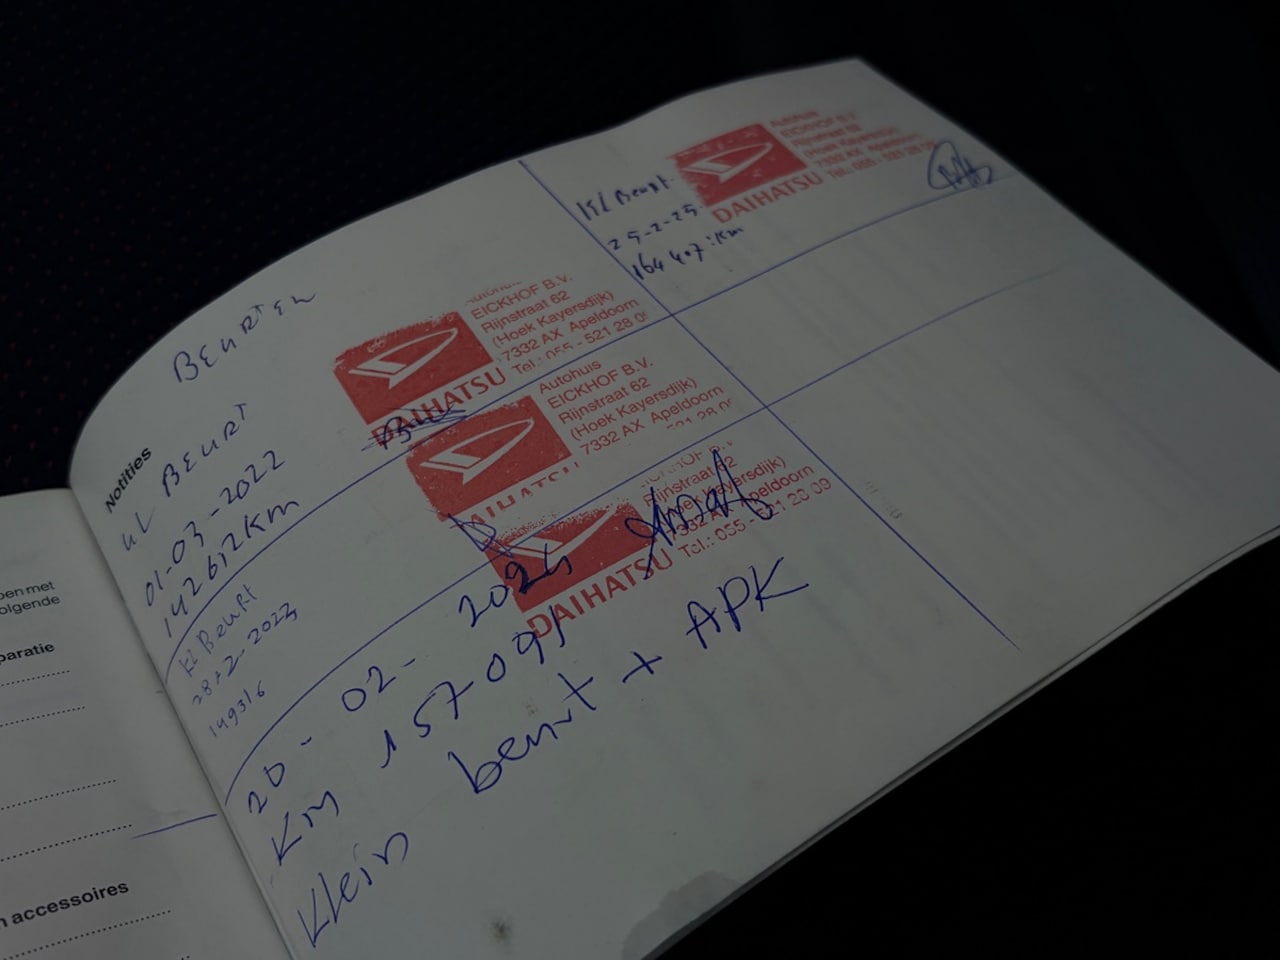 en met
olgende
paratie
n accessoires
Notities
BEURTEN
KL BEURT
01-03-2022
142612Km
EICKHOF B.V.
Rijnstraat 62
(Hoek Kayersdijk)
7332 AX Apeldoorn
Tel.: 055 - 521 28 0
DAIHATSU
Kl Beurt
28-2-2023
149316
Autohuis
EICKHOF B.V.
Rijnstraat 62
(Hoek Kayersdijk)
7332 AX Apeldoorn
DAIHATSU
20-02-2024
Km 157091
Klein beurt + APK
Rijnstraat 62
Hoek Kayersdijk)
7332 AX Apeldoorn
Tel.: 055 - 521 28 09
DAIHATSU
Kl Beurt.
25-2-25.
164407:Km
Autohuis
EICKHOF B.V.
Rijnstraat 62
(Hoek Kayersdijk)
7332 AX Apeldoorn
Tel.: 055 - 521 28 09
DAIHATSU